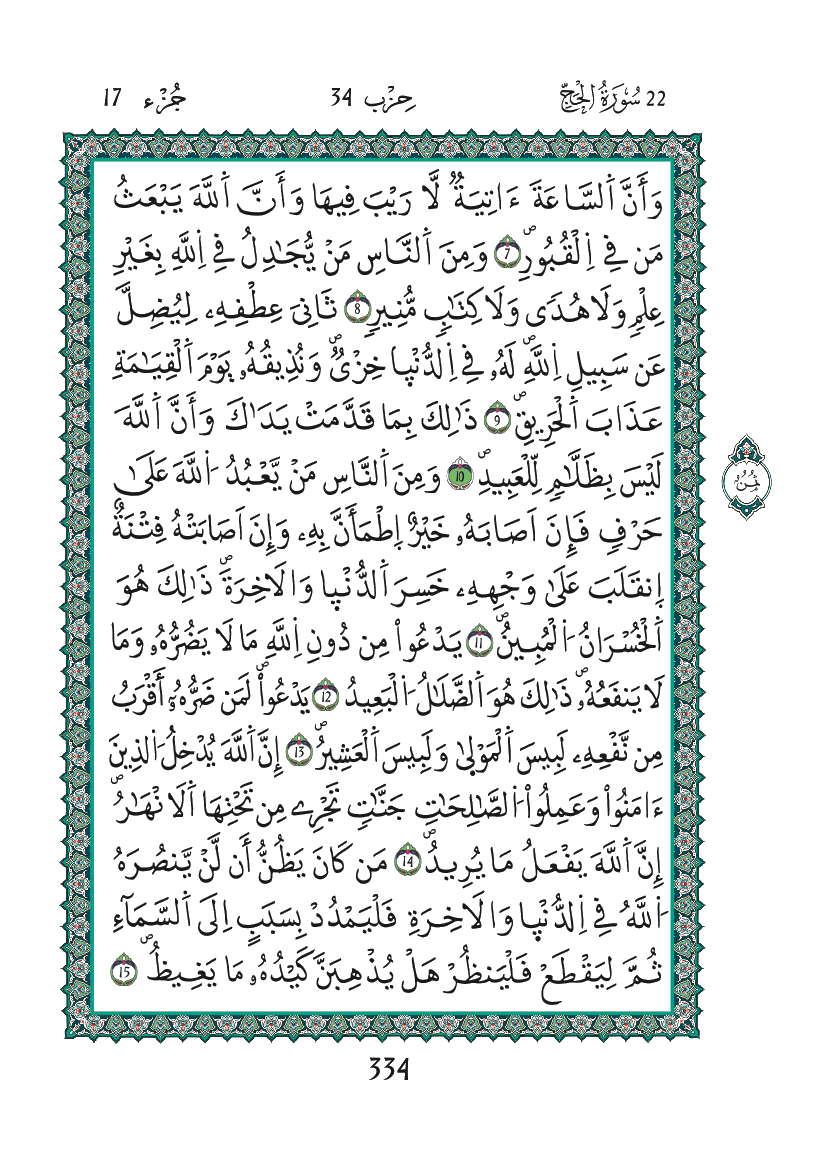 22 سُورَةُ الْحَجِّ حِزْب 34 جُزْء 17
وَأَنَّ اَ۬لسَّاعَةَ ءَاتِيَةٞ لَّا رَيْبَ فِيهَا وَأَنَّ اَ۬للَّهَ يَبْعَثُ
مَن فِے اِ۬لْقُبُورِۖ 7 وَمِنَ اَ۬لنَّاسِ مَنْ يُّجَٰدِلُ فِے اِ۬للَّهِ بِغَيْرِ
عِلْمٖ وَلَا هُديٗ وَلَا كِتَٰبٖ مُّنِيرٖ 8 ثَانِيَ عِطْفِهِۦ لِيُضِلَّ
عَن سَبِيلِ اِ۬للَّهِۖ لَهُۥ فِے اِ۬لدُّنْي۪ا خِزْيٞۖ وَنُذِيقُهُۥ يَوْمَ اَ۬لْقِيَٰمَةِ
عَذَابَ اَ۬لْحَرِيقِۖ 9 ذَٰلِكَ بِمَا قَدَّمَتْ يَدَاكَ وَأَنَّ اَ۬للَّهَ
لَيْسَ بِظَلَّٰمٖ لِّلْعَبِيدِۖ 10 وَمِنَ اَ۬لنَّاسِ مَنْ يَّعْبُدُ اُ۬للَّهَ عَلَىٰ
حَرْفٖ فَإِنَ اَصَابَهُۥ خَيْرٌ اِ۪طْمَأَنَّ بِهِۦ وَإِنَ اَصَابَتْهُ فِتْنَةٌ
اِ۪نقَلَبَ عَلَىٰ وَجْهِهِۦ خَسِرَ اَ۬لدُّنْي۪ا وَالَاخِرَةَۖ ذَٰلِكَ هُوَ
اَ۬لْخُسْرَانُ اُ۬لْمُبِينُۖ 11 يَدْعُواْ مِن دُونِ اِ۬للَّهِ مَا لَا يَضُرُّهُۥ وَمَا
لَا يَنفَعُهُۥۖ ذَٰلِكَ هُوَ اَ۬لضَّلَٰلُ اُ۬لْبَعِيدُۖ 12 يَدْعُواْ لَمَن ضَرُّهُۥٓ أَقْرَبُ
مِن نَّفْعِهِۦ لَبِيسَ اَ۬لْمَوْل۪ىٰ وَلَبِيسَ اَ۬لْعَشِيرُۖ 13 إِنَّ اَ۬للَّهَ يُدْخِلُ اُ۬لذِينَ
ءَامَنُواْ وَعَمِلُواْ اُ۬لصَّٰلِحَٰتِ جَنَّٰتٖ تَجْرِے مِن تَحْتِهَا اَ۬لَانْهَٰرُۖ
إِنَّ اَ۬للَّهَ يَفْعَلُ مَا يُرِيدُۖ 14 مَن كَانَ يَظُنُّ أَن لَّنْ يَّنصُرَهُ
اُ۬للَّهُ فِے اِ۬لدُّنْي۪ا وَالَاخِرَةِ فَلْيَمْدُدْ بِسَبَبٍ اِلَى اَ۬لسَّمَآءِ
ثُمَّ لِيَقْطَعْ فَلْيَنظُرْ هَلْ يُذْهِبَنَّ كَيْدُهُۥ مَا يَغِيظُۖ 15
ثُمُن
334